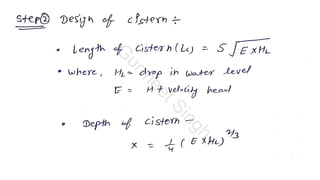 Step② Design of cistern ÷
• Length of cistern (Lc) = 5 √E×HL
• where, HL = drop in water level
E = H + velocity head
• Depth of cistern —
x = 1/4 (E×HL)^2/3
Gurmeet Singh